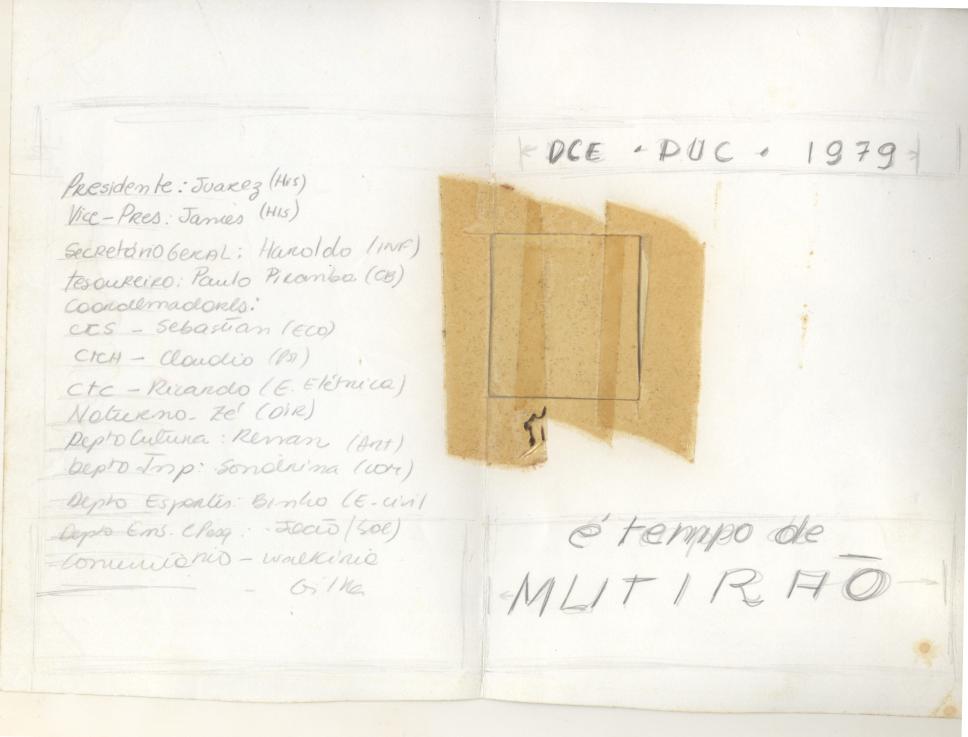 Presidente: Juarez (His)
Vice-Pres: James (His)
Secretário Geral: Haroldo (INF)
Tesoureiro: Paulo Piramba (CB)
Coordenadores:
CCS - Sebastian (ECO)
CTCH - Claudio (Psi)
CTC - Ricardo (E. Elétrica)
Noturno - Zé (DIR)
Depto Cultura: Renan (Art)
Depto Imp: Soninha (COM)
Depto Esportes: Binho (E-civil
Depto Ens. e Pesq: João (Soc)
Comunitário - Walkiria
- Gilka
DCE • PUC • 1979
é tempo de
MUTIRÃO